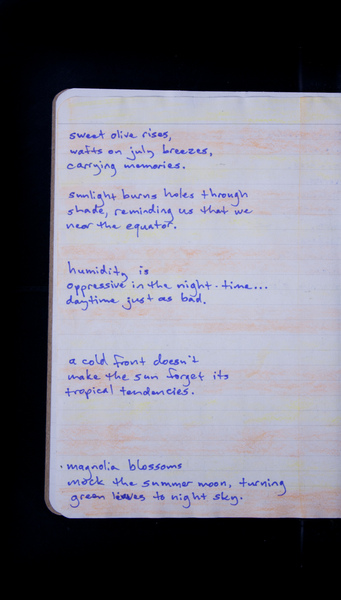 sweet olive rises,
wafts on july breezes,
carrying memories.
sunlight burns holes through
shade, reminding us that we
near the equator.
humidity is
oppressive in the night-time...
daytime just as bad.
a cold front doesn't
make the sun forget its
tropical tendencies.
magnolia blossoms
mock the summer moon, turning
green leaves to night sky.